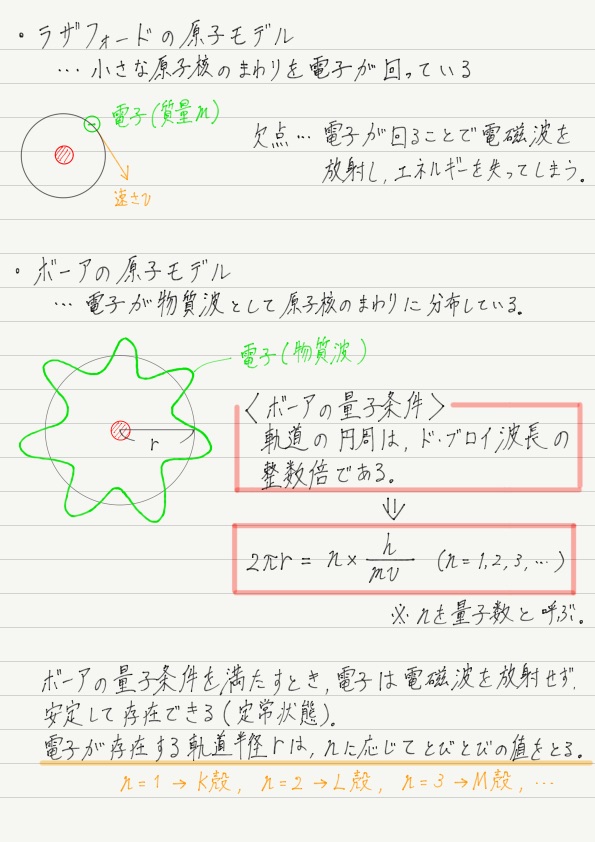 ・ラザフォードの原子モデル
…小さな原子核のまわりを電子が回っている
電子(質量m)
速さv
欠点…電子が回ることで電磁波を
放射し,エネルギーを失ってしまう。
・ボーアの原子モデル
…電子が物質波として原子核のまわりに分布している。
電子(物質波)
r
〈ボーアの量子条件〉
軌道の円周は,ド・ブロイ波長の
整数倍である。
⇓
2πr = n × h/mv (n=1,2,3,…)
※nを量子数と呼ぶ。
ボーアの量子条件を満たすとき,電子は電磁波を放射せず,
安定して存在できる(定常状態)。
電子が存在する軌道半径rは,nに応じてとびとびの値をとる。
n=1→K殻, n=2→L殻, n=3→M殻,…